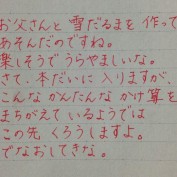 お父さんと 雪だるまを 作って
あそんだのですね。
楽しそうでうらやましいな。
さて、本だいに 入りますが、
こんな かんたんな かけ算を
まちがえて いるようでは
この先 くろうしますよ。
でなおしてきな。